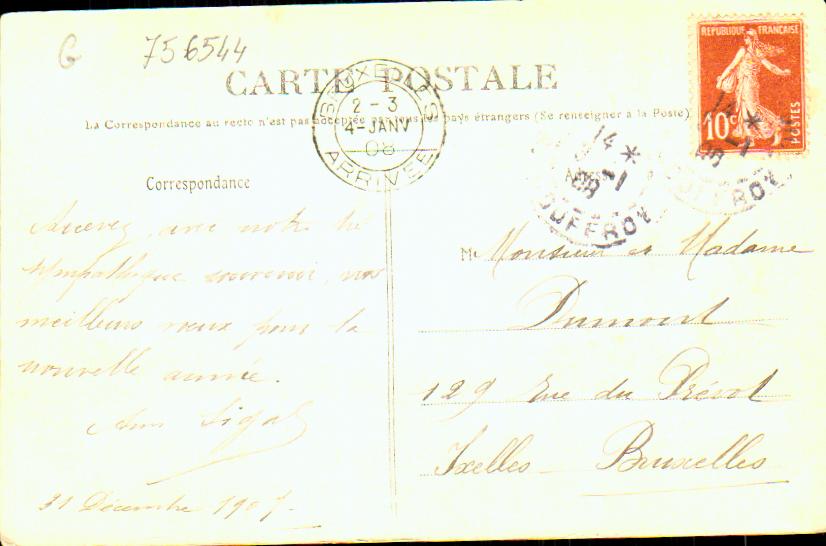 G 756544
CARTE POSTALE
La Correspondance au recto n'est pas acceptée par tous les pays étrangers (Se renseigner à la Poste)
BRUXELLES
2 - 3
4 - JANV
08
ARRIVÉE
REPUBLIQUE FRANÇAISE
10c
POSTES
14 *
-1
08
JOUFFROY
14 *
-1
08
JOUFFROY
Correspondance
Adresse
avec notre
sympathique souvenir, nos
meilleurs vœux pour la
nouvelle année.
31 Décembre 1907.
M Monsieur et Madame
Dumont
129 Rue du Prévot
Ixelles - Bruxelles